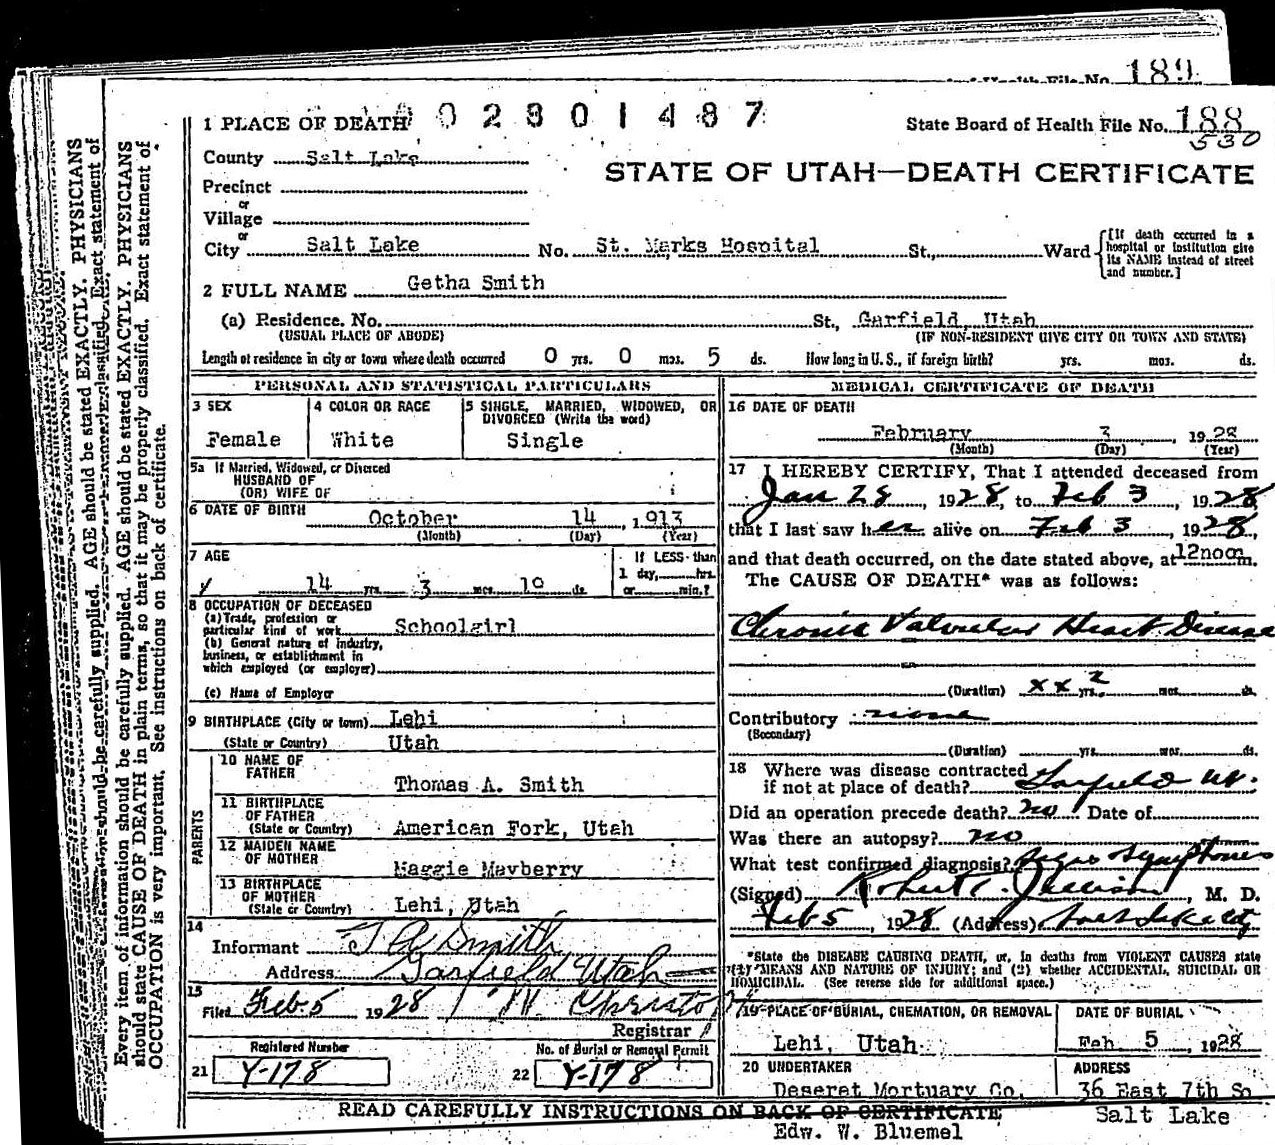 189
1 PLACE OF DEATH 02801487
State Board of Health File No. 188
530
County Salt Lake
STATE OF UTAH—DEATH CERTIFICATE
Precinct
or
Village
or
City Salt Lake No. St. Marks Hospital St., Ward
[If death occurred in a hospital or institution give its NAME instead of street and number.]
2 FULL NAME Getha Smith
(a) Residence. No. St., Garfield, Utah
(USUAL PLACE OF ABODE) (IF NON-RESIDENT GIVE CITY OR TOWN AND STATE)
Length of residence in city or town where death occurred 0 yrs. 0 mos. 5 ds. How long in U. S., if foreign birth? yrs. mos. ds.
PERSONAL AND STATISTICAL PARTICULARS
3 SEX
Female
4 COLOR OR RACE
White
5 SINGLE, MARRIED, WIDOWED, OR
DIVORCED (Write the word)
Single
5a If Married, Widowed, or Divorced
HUSBAND OF
(OR) WIFE OF
6 DATE OF BIRTH October 14, 1913
(Month) (Day) (Year)
7 AGE
14 yrs. 3 mos. 19 ds.
If LESS than
1 day, hrs.
or min.?
8 OCCUPATION OF DECEASED
(a) Trade, profession or
particular kind of work Schoolgirl
(b) General nature of industry,
business, or establishment in
which employed (or employer)
(c) Name of Employer
9 BIRTHPLACE (City or town) Lehi
(State or Country) Utah
PARENTS
10 NAME OF
FATHER
Thomas A. Smith
11 BIRTHPLACE
OF FATHER
(State or Country) American Fork, Utah
12 MAIDEN NAME
OF MOTHER
Maggie Mayberry
13 BIRTHPLACE
OF MOTHER
(State or Country) Lehi, Utah
14
Informant T A Smith
Address Garfield Utah
15
Filed Feb. 5 1928
Registrar
Registered Number
21 Y-178
No. of Burial or Removal Permit
22 Y-178
MEDICAL CERTIFICATE OF DEATH
16 DATE OF DEATH
February 3, 1928
(Month) (Day) (Year)
17 I HEREBY CERTIFY, That I attended deceased from
Jan 28, 1928, to Feb 3, 1928,
that I last saw her alive on Feb 3, 1928,
and that death occurred, on the date stated above, at 12noon m.
The CAUSE OF DEATH* was as follows:
Chronic Valvular Heart Disease
(Duration) xx yrs. 2 mos. ds.
Contributory none
(Secondary)
(Duration) yrs. mos. ds.
18 Where was disease contracted
if not at place of death? Garfield Ut.
Did an operation precede death? no Date of
Was there an autopsy? no
What test confirmed diagnosis? Signs Symptoms
(Signed) Robert, M. D.
Feb 5, 1928 (Address) Salt Lake City
*State the DISEASE CAUSING DEATH, or, in deaths from VIOLENT CAUSES state
(1) MEANS AND NATURE OF INJURY; and (2) whether ACCIDENTAL, SUICIDAL OR
HOMICIDAL. (See reverse side for additional space.)
19 PLACE OF BURIAL, CREMATION, OR REMOVAL
Lehi, Utah
DATE OF BURIAL
Feb. 5, 1928
20 UNDERTAKER
Deseret Mortuary Co.
ADDRESS
36 East 7th So
READ CAREFULLY INSTRUCTIONS ON BACK OF CERTIFICATE
Salt Lake
Edw. W. Bluemel
Every item of information should be carefully supplied. AGE should be stated EXACTLY. PHYSICIANS
should state CAUSE OF DEATH in plain terms, so that it may be properly classified. Exact statement of
OCCUPATION is very important. See instructions on back of certificate.